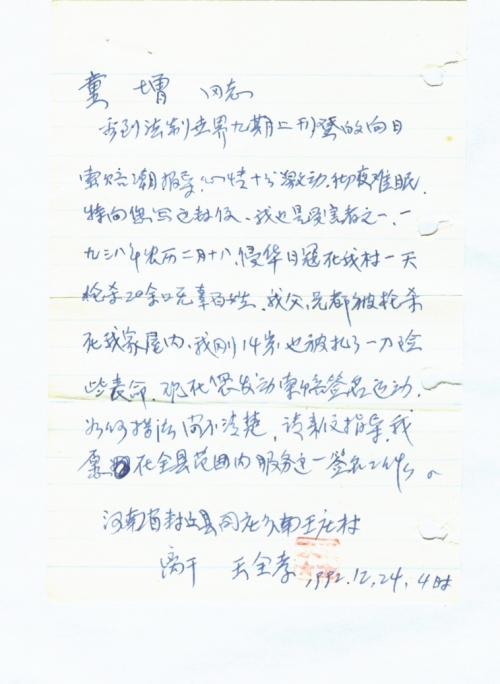 童增 同志
看到法制世界九期上刊登的向日
索赔潮报导,心情十分激动,彻夜难眠.
特向您写这封信、我也是受害者之一、一
九三八年农历二月十八、侵华日寇在我村一天
枪杀20余口无辜百姓、我父、兄都被枪杀
在我家屋内、我刚14岁,也被扎了一刀险
些丧命.现在您发动索赔签名运动.
如何搞法尚不清楚,请来信指导.我
愿在全县范围内服务这一签名工作。
河南省封丘县司庄乡南王庄村
离干 王全孝
1992.12.24.4时